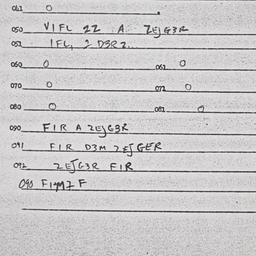 041 O
050 VIFL 22 A ZEJG3R
051 IFL, 2 D3R2..
060 O 061 O
070 O 072 O
080 O 081 O
090 FIR A ZEJG3R
091 FIR D3M ZEJGER
092 ZEJG3R FIR